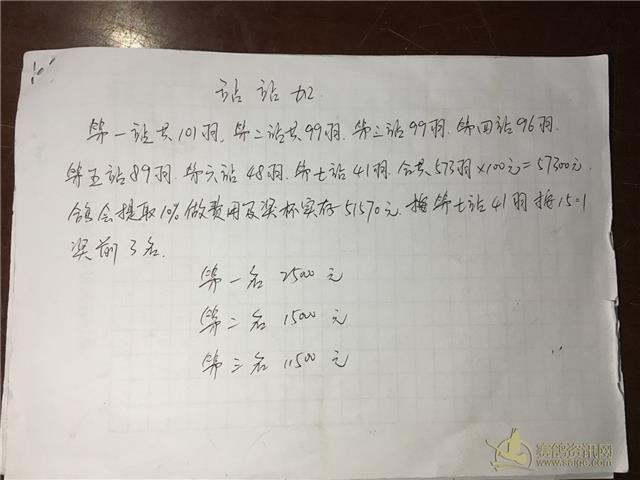 站站加
第一站共101羽.第二站共99羽.第三站99羽.第四站96羽.
第五站89羽.第六站48羽.第七站41羽.合共573羽×100元=57300元.
鸽会提取10%做费用及奖杯实存51570元.按第七站41羽按15=1
奖前3名.
第一名 25000元
第二名 15000元
第三名 11500元
赛鸽资讯网
www.saige.com